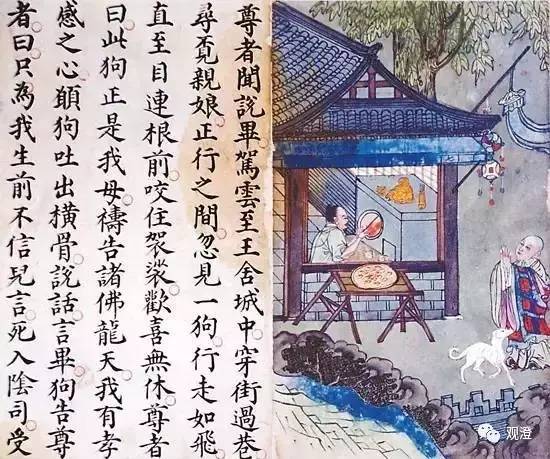 尊者聞說畢駕雲至王舍城中穿街過巷
尋覔親娘正行之間忽見一狗行走如飛
直至目連根前咬住袈裟歡喜無休尊者
曰此狗正是我母禱告諸佛龍天我有孝
感之心願狗吐出橫骨說話言畢狗告尊
者曰只為我生前不信兒言死入陰司受
观澄